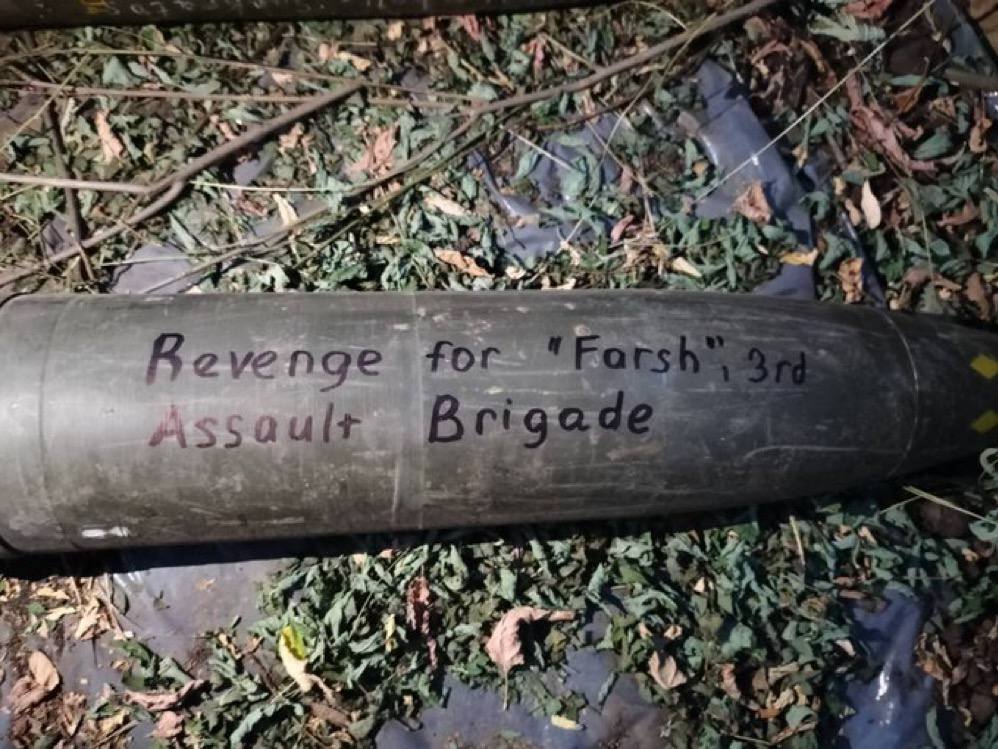 Revenge for "Farsh", 3rd
Assault Brigade